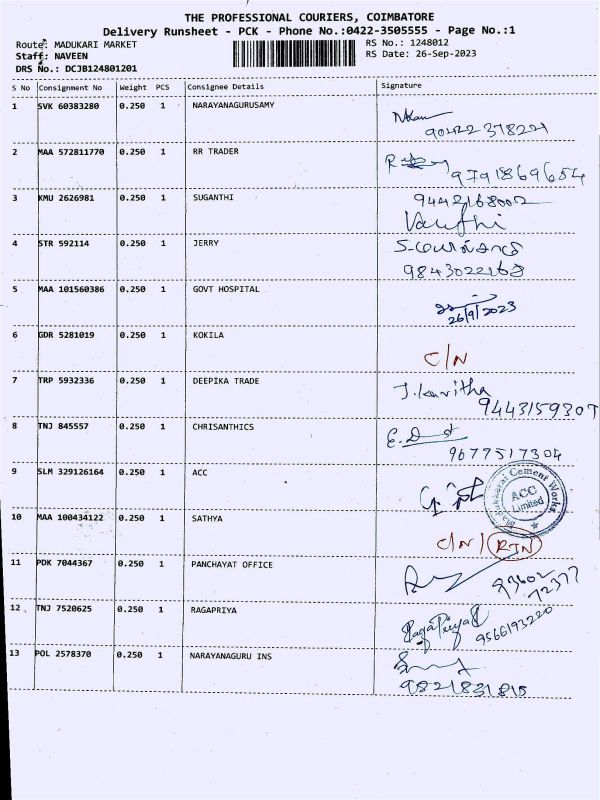 THE PROFESSIONAL COURIERS, COIMBATORE
Delivery Runsheet - PCK - Phone No.:0422-3505555 - Page No.:1
Route: MADUKARI MARKET
RS No.: 1248012
Staff: NAVEEN
RS Date: 26-Sep-2023
DRS No.: DCJB124801201
S No Consignment No Weight PCS Consignee Details Signature
1 SVK 60383280 0.250 1 NARAYANAGURUSAMY
90422 378221
2 MAA 572811770 0.250 1 RR TRADER
9791869654
3 KMU 2626981 0.250 1 SUGANTHI 9442168002
4 STR 592114 0.250 1 JERRY
9843022168
5 MAA 101560386 0.250 1 GOVT HOSPITAL
26/9/2023
6 GDR 5281019 0.250 1 KOKILA
C/N
7 TRP 5932336 0.250 1 DEEPIKA TRADE J. Kavitha
9443159307
8 TNJ 845557 0.250 1 CHRISANTHICS
9677517304
9 SLM 329126164 0.250 1 ACC
Madukkarai Cement Works
ACC
Limited
10 MAA 100434122 0.250 1 SATHYA
C/N/ RTN
11 PDK 7044367 0.250 1 PANCHAYAT OFFICE
93602
72377
12 TNJ 7520625 0.250 1 RAGAPRIYA
RagaPriya
9566193220
13 POL 2578370 0.250 1 NARAYANAGURU INS
9821831815